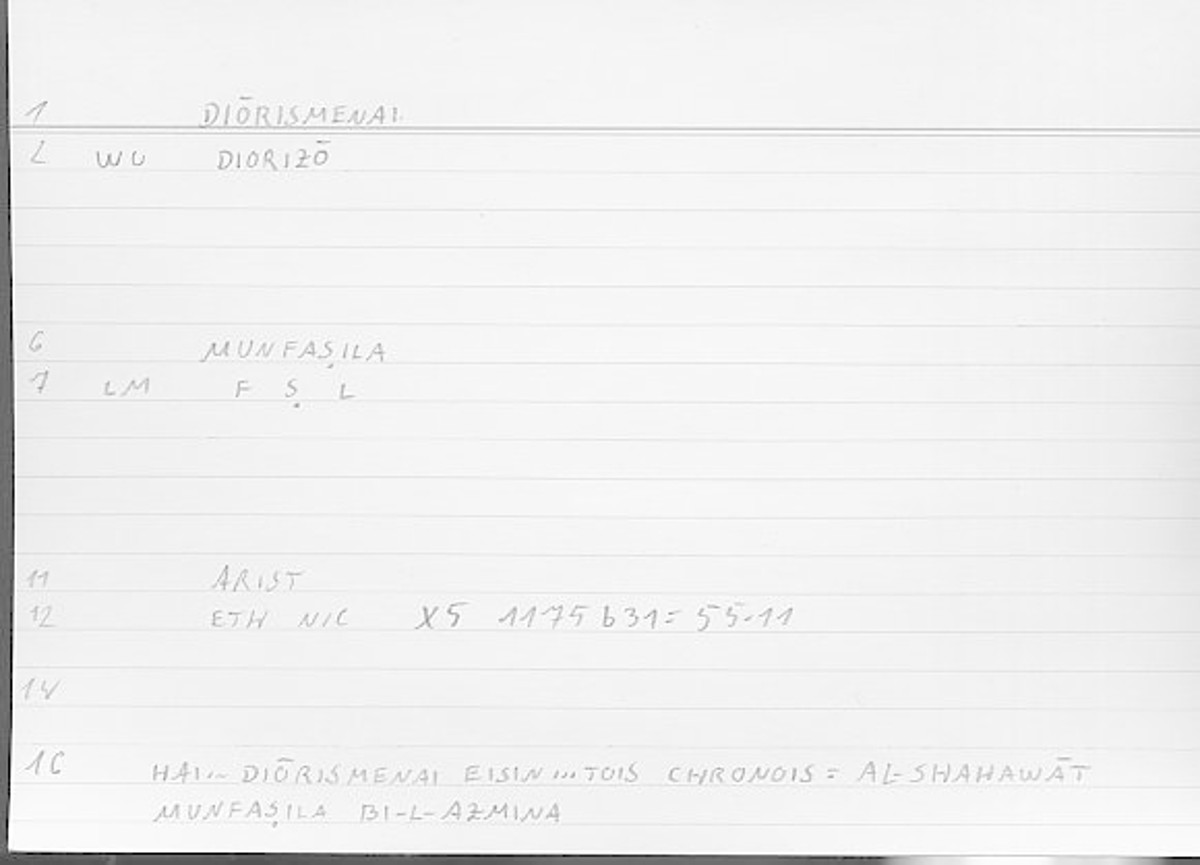 1 DIŌRISMENAI
2 WU DIORIZŌ
6 MUNFAṢILA
7 LM F Ṣ L
11 ARIST
12 ETH NIC X5 1175 b 31 = 55.11
14
16 HAI... DIŌRISMENAI EISIN ... TOIS CHRONOIS = AL-SHAHAWĀT
MUNFAṢILA BI-L-AZMINA